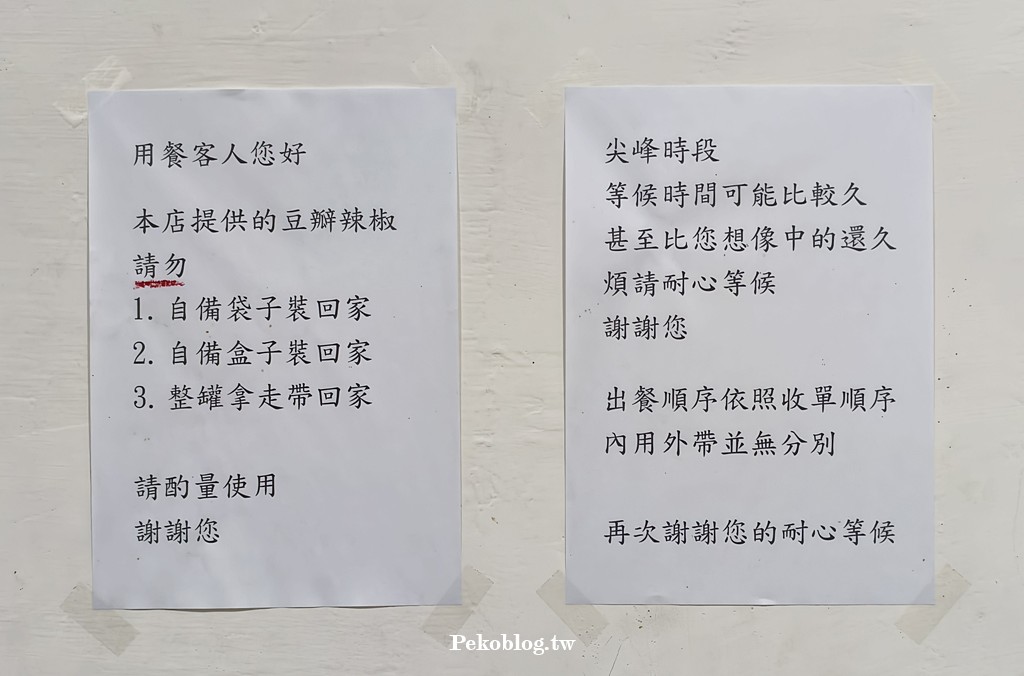 用餐客人您好
本店提供的豆瓣辣椒
請勿
1. 自備袋子裝回家
2. 自備盒子裝回家
3. 整罐拿走帶回家
請酌量使用
謝謝您
尖峰時段
等候時間可能比較久
甚至比您想像中的還久
煩請耐心等候
謝謝您
出餐順序依照收單順序
內用外帶並無分別
再次謝謝您的耐心等候
Pekoblog.tw